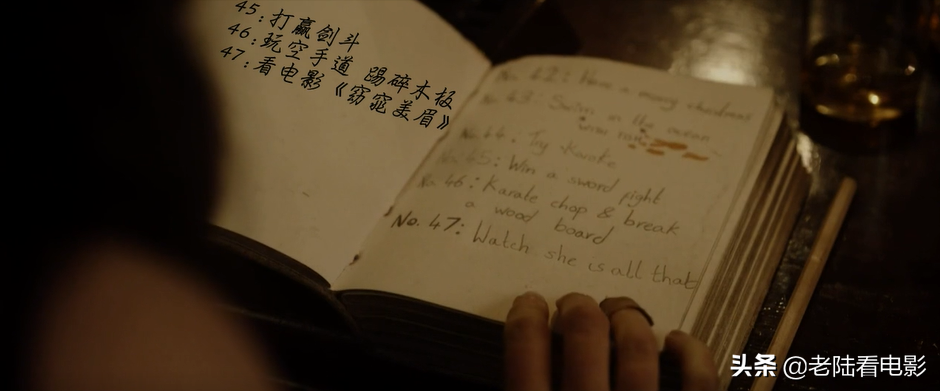 45:打赢剑斗
46:玩空手道 踢碎木板
47:看电影《窈窕美眉》
No. 42: Have a merry christmas
No. 43: Swim in the ocean
No. 44: Try Karate
No. 45: Win a sword fight
No. 46: Karate chop & break
a wood board
No. 47: Watch she is all that
头条 @老陆看电影